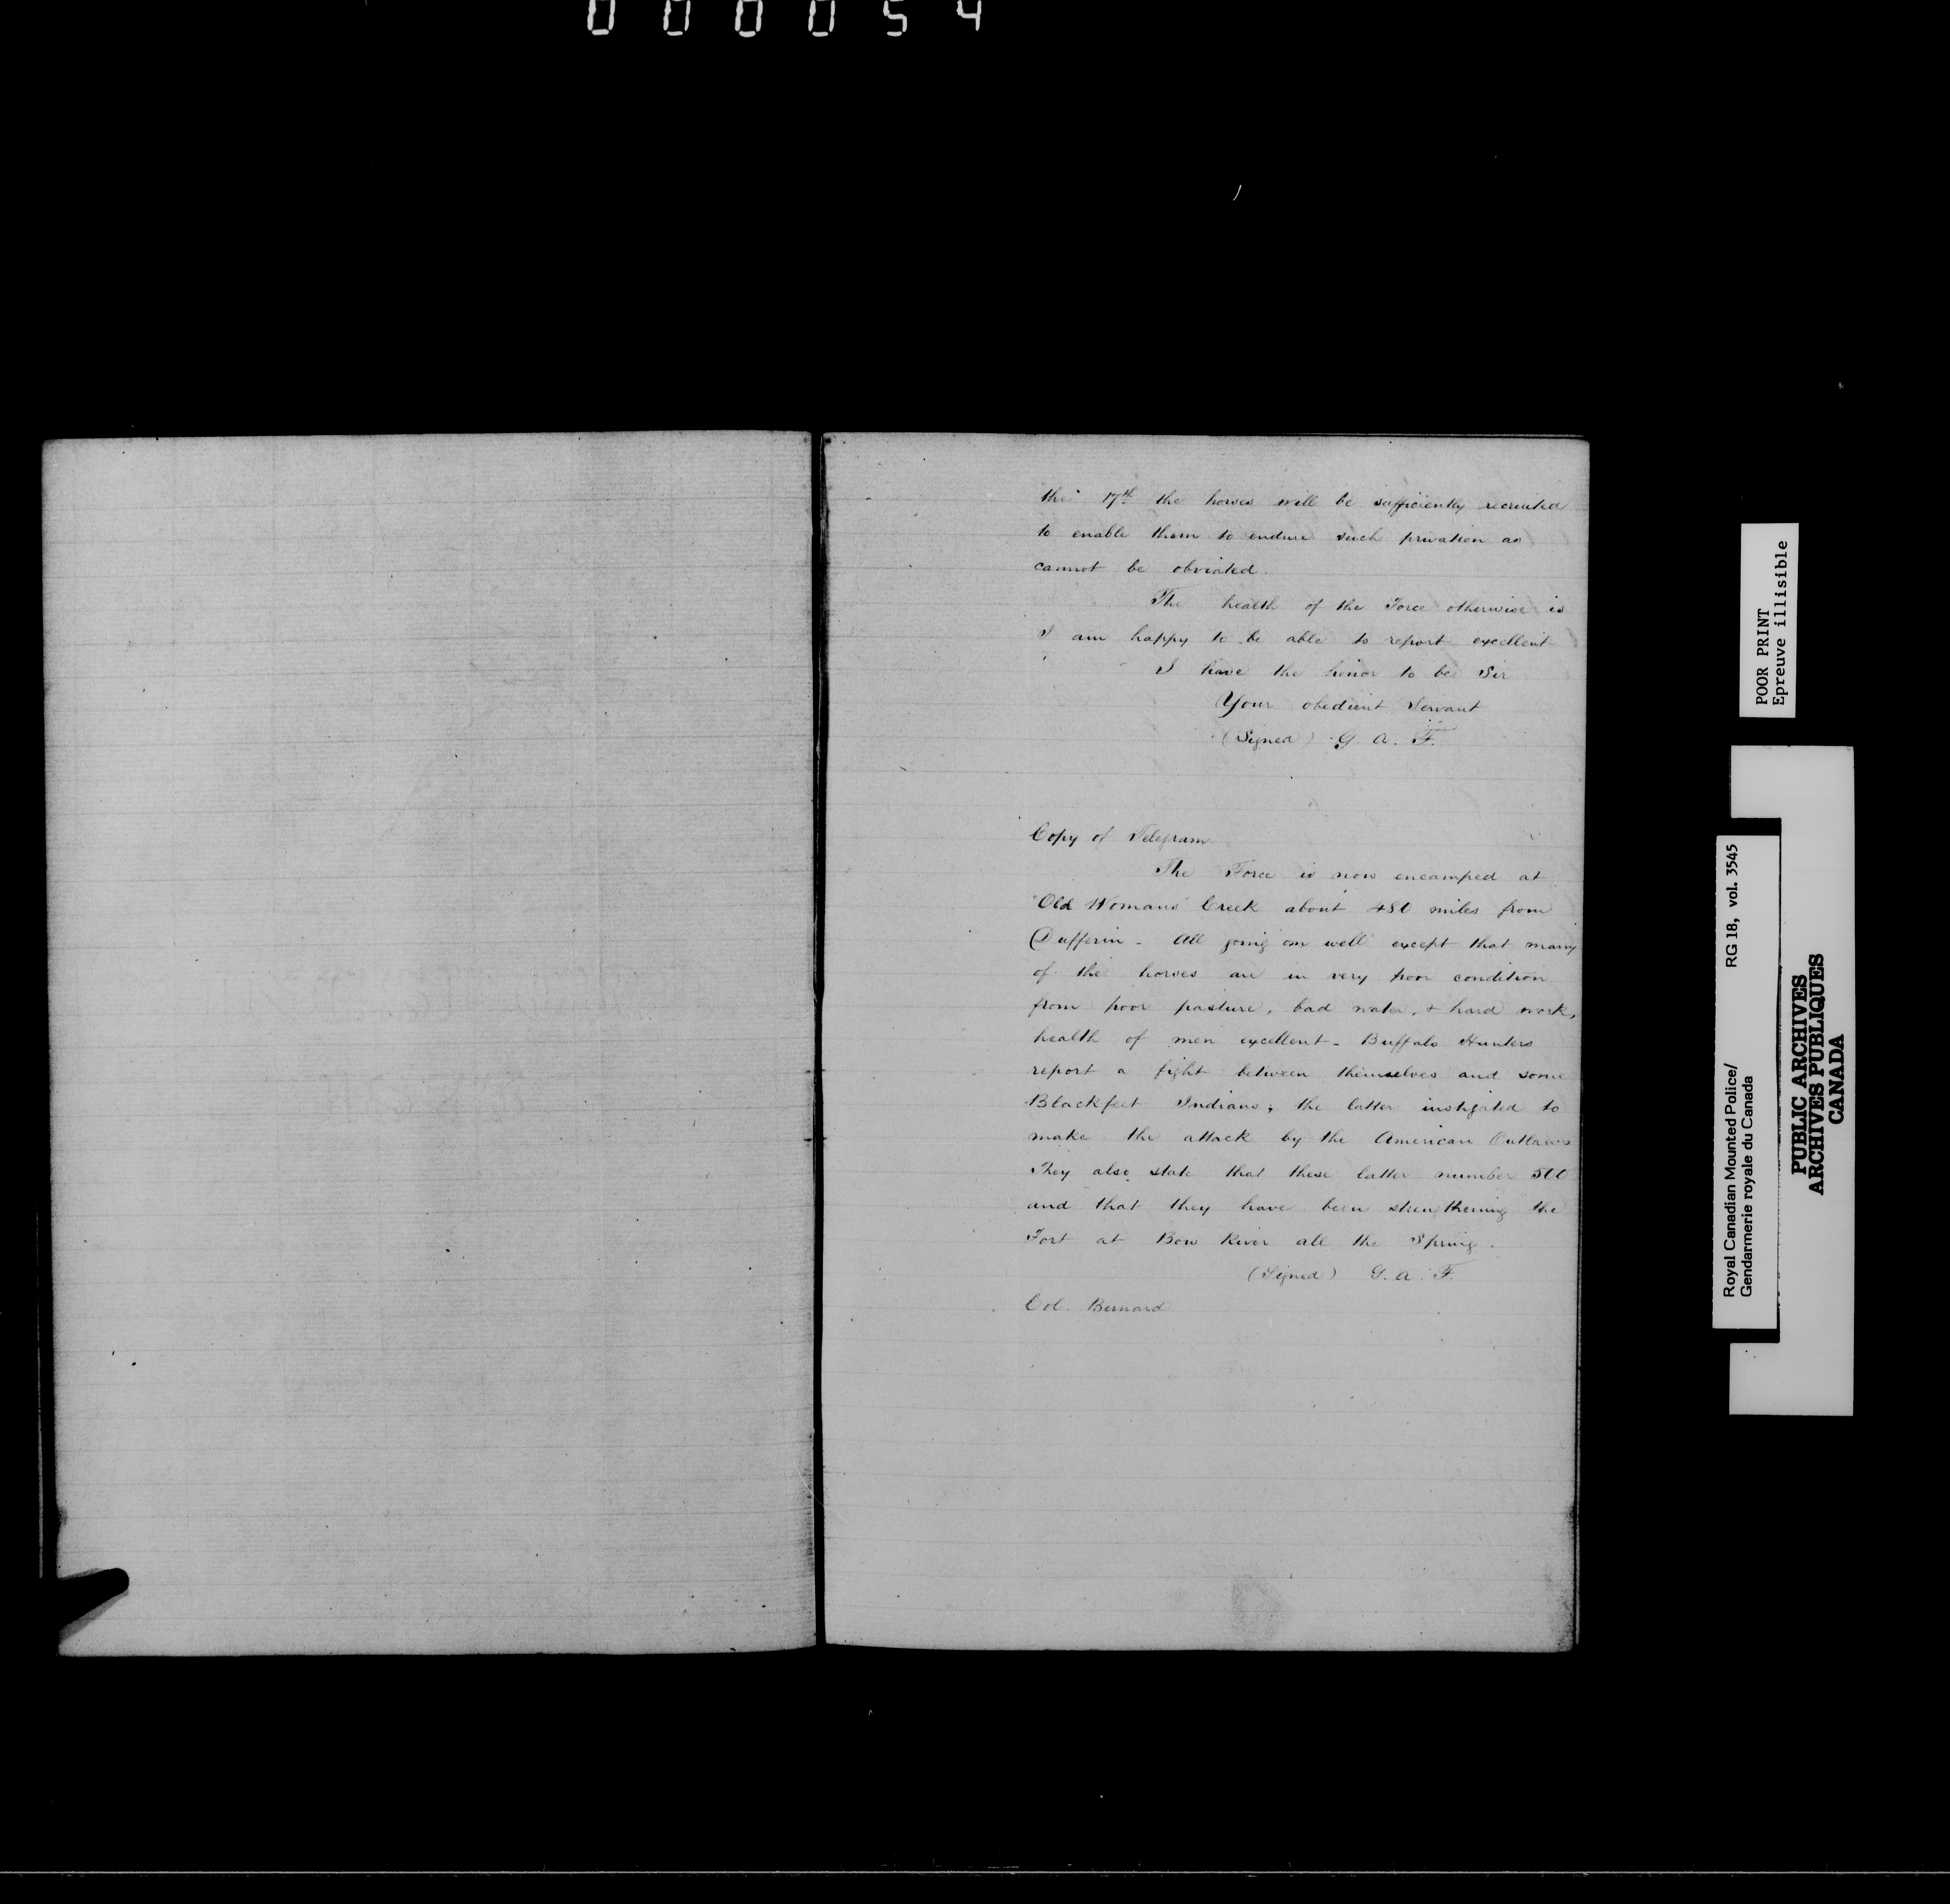 000054
the 17th the horses will be sufficiently recruited
to enable them to endure such privation as
cannot be obviated.
The health of the Force otherwise is
I am happy to be able to report excellent
I have the honor to be Sir
Your obedient Servant
(Signed) G. A. F.
Copy of Telegram
The Force is now encamped at
"Old Womans" Creek about 480 miles from
Dufferin - All going on well except that many
of the horses are in very poor condition
from poor pasture, bad water, & hard work,
health of men excellent - Buffalo Hunters
report a fight between themselves and some
Blackfeet Indians; the latter instigated to
make the attack by the American Outlaws
They also state that these latter number 500
and that they have been strengthening the
Fort at Bow River all the Spring.
(Signed) G. A. F.
Col. Bernard
POOR PRINT
Epreuve illisible
Royal Canadian Mounted Police/ RG 18, vol. 3545
Gendarmerie royale du Canada
PUBLIC ARCHIVES
ARCHIVES PUBLIQUES
CANADA